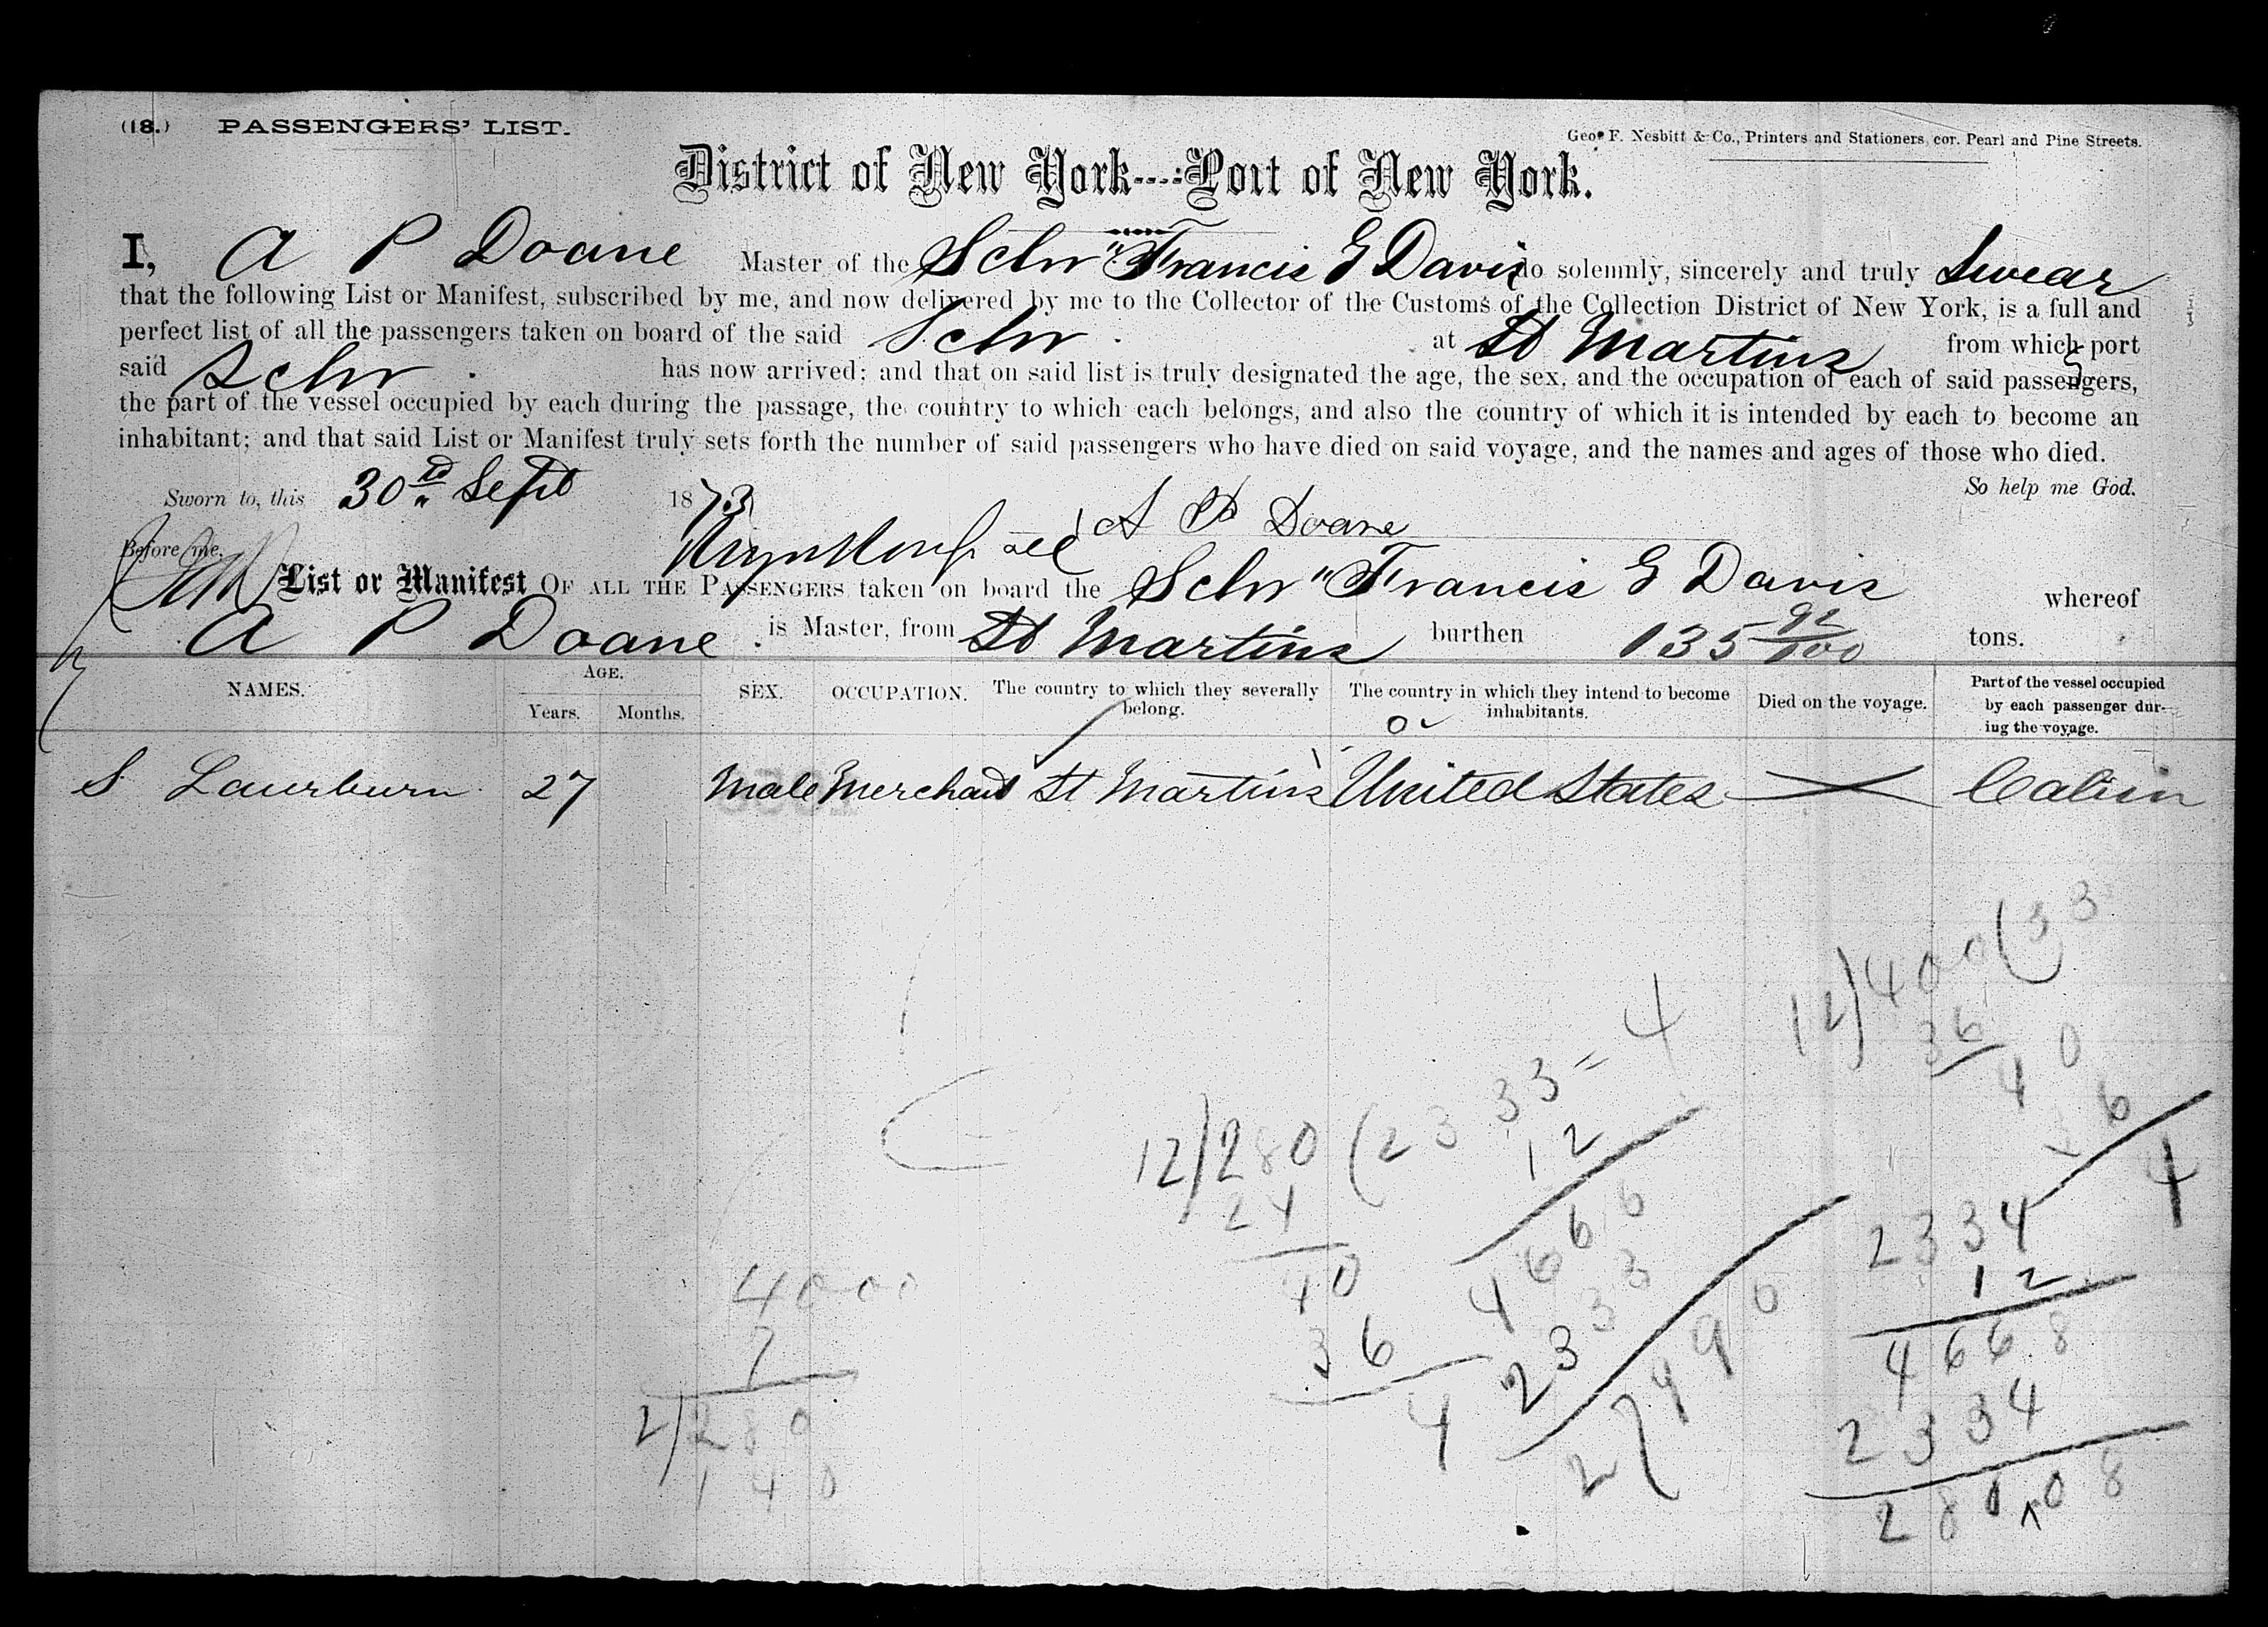 (18.) PASSENGERS' LIST.
Geo. F. Nesbitt & Co., Printers and Stationers, cor. Pearl and Pine Streets.
District of New York----:Port of New York.
I, A P Doane Master of the Schr "Francis G Davis do solemnly, sincerely and truly Swear
that the following List or Manifest, subscribed by me, and now delivered by me to the Collector of the Customs of the Collection District of New York, is a full and
perfect list of all the passengers taken on board of the said Schr at St Martins from which port
said Schr has now arrived; and that on said list is truly designated the age, the sex, and the occupation of each of said passengers,
the part of the vessel occupied by each during the passage, the country to which each belongs, and also the country of which it is intended by each to become an
inhabitant; and that said List or Manifest truly sets forth the number of said passengers who have died on said voyage, and the names and ages of those who died.
So help me God.
Sworn to, this 30th Sept 1873
A P Doane
Before me,
List or Manifest OF ALL THE PASSENGERS taken on board the Schr "Francis G Davis whereof
A P Doane is Master, from St Martins burthen 135 92/100 tons.
NAMES. AGE. Years. Months. SEX. OCCUPATION. The country to which they severally belong. The country in which they intend to become inhabitants. Died on the voyage. Part of the vessel occupied by each passenger during the voyage.
S Laurburn 27 Male Merchant St Martins United States Cabin
12)400(33
36
40
36
4
12)280(2333=4
24
40
36
4
12
4666
2333
2334
12
4668
2334
28008
4000
7
2)280
140